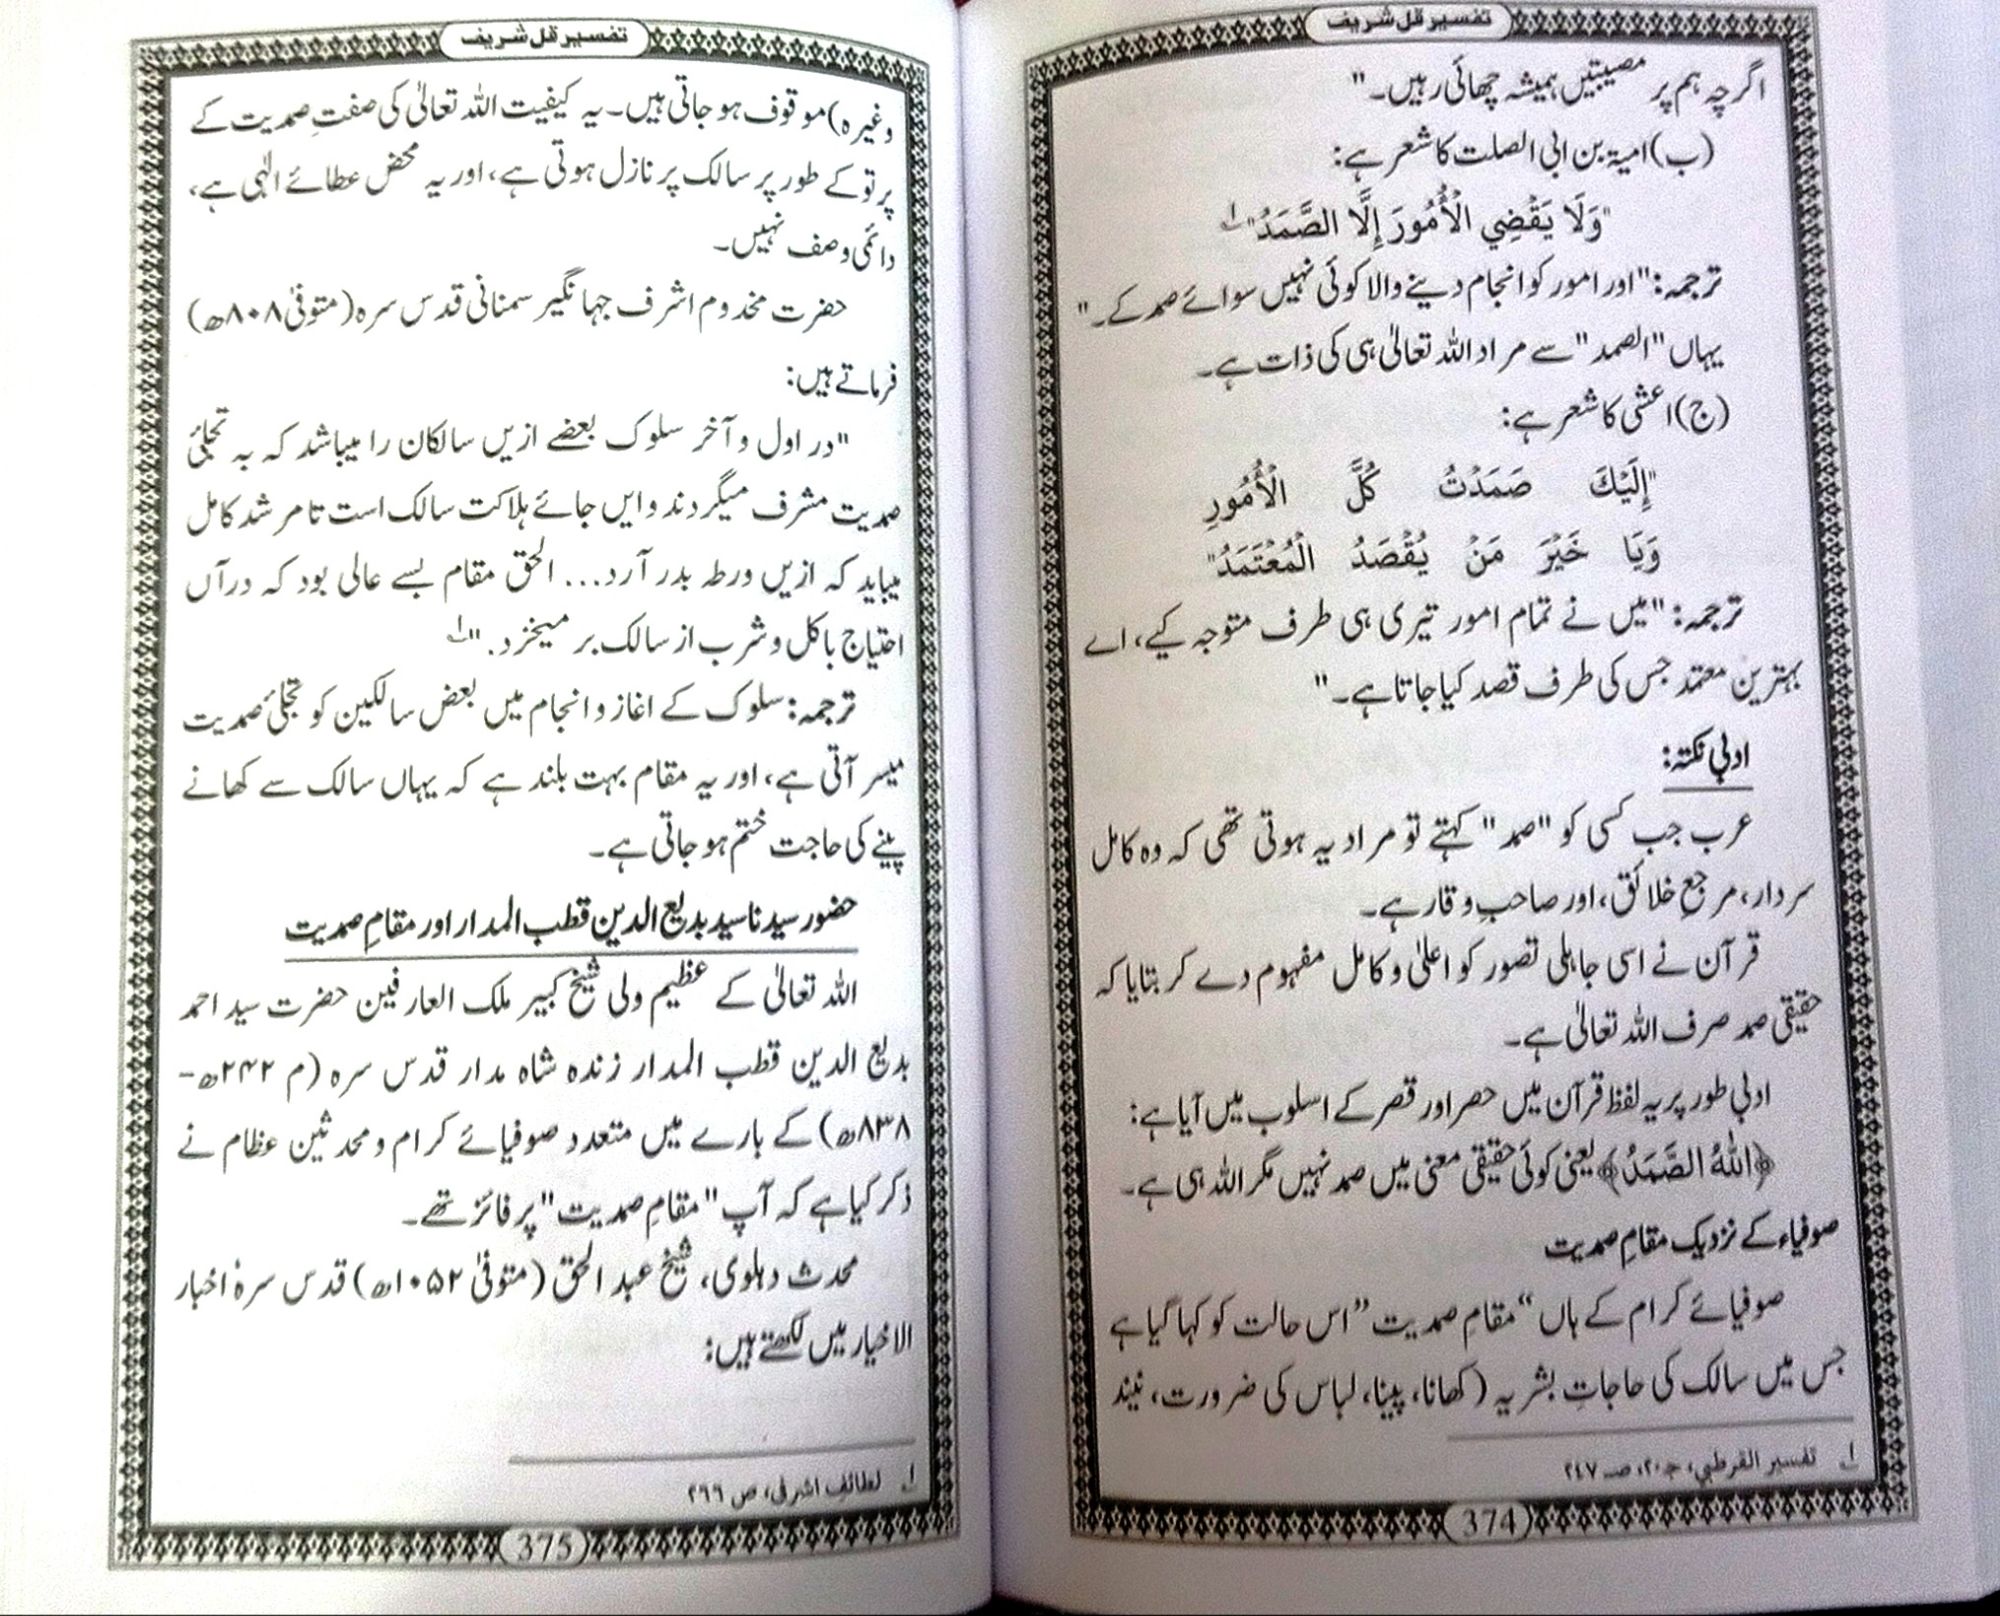 تفسیر قل شریف
اگرچہ ہم پر مصیبتیں ہمیشہ چھائی رہیں۔"
(ب) امیۃ بن ابی الصلت کا شعر ہے:
"وَلَا يَقْضِي الْأُمُورَ إِلَّا الصَّمَدُ"۱
ترجمہ: "اور امور کو انجام دینے والا کوئی نہیں سوائے صمد کے۔"
یہاں "الصمد" سے مراد اللہ تعالیٰ ہی کی ذات ہے۔
(ج) اعشی کا شعر ہے:
"إِلَيْكَ صَمَدْتُ كُلَّ الْأُمُورِ
وَيَا خَيْرَ مَنْ يُقْصَدُ الْمُعْتَمَدُ"
ترجمہ: "میں نے تمام امور تیری ہی طرف متوجہ کیے، اے
بہترین معتمد جس کی طرف قصد کیا جاتا ہے۔"
ادبی نکتہ:
عرب جب کسی کو "صمد" کہتے تو مراد یہ ہوتی تھی کہ وہ کامل
سردار، مرجعِ خلائق، اور صاحبِ وقار ہے۔
قرآن نے اسی جاہلی تصور کو اعلیٰ و کامل مفہوم دے کر بتایا کہ
حقیقی صمد صرف اللہ تعالیٰ ہے۔
ادبی طور پر یہ لفظ قرآن میں حصر اور قصر کے اسلوب میں آیا ہے:
﴿اللّٰهُ الصَّمَدُ﴾ یعنی کوئی حقیقی معنی میں صمد نہیں مگر اللہ ہی ہے۔
صوفیاء کے نزدیک مقامِ صمدیت
صوفیائے کرام کے ہاں "مقامِ صمدیت" اس حالت کو کہا گیا ہے
جس میں سالک کی حاجاتِ بشریہ (کھانا، پینا، لباس کی ضرورت، نیند
۱ تفسیر القرطبي، ج۲۰، صـ ۲۴۷
374
تفسیر قل شریف
وغیرہ) موقوف ہو جاتی ہیں۔ یہ کیفیت اللہ تعالیٰ کی صفتِ صمدیت کے
پرتو کے طور پر سالک پر نازل ہوتی ہے، اور یہ محض عطائے الٰہی ہے،
دائمی وصف نہیں۔
حضرت مخدوم اشرف جہانگیر سمنانی قدس سرہ (متوفیٰ ۸۰۸ھ)
فرماتے ہیں:
"در اول و آخر سلوک بعضے ازیں سالکان را میباشد کہ بہ تجلیٔ
صمدیت مشرف میگردند و ایں جائے ہلاکت سالک است تا مرشد کامل
میباید کہ ازیں ورطہ بدر آرد... الحق مقام بسے عالی بود کہ درآں
احتیاج باکل و شرب از سالک بر میخزد."۱
ترجمہ: سلوک کے اغاز و انجام میں بعض سالکین کو تجلیٔ صمدیت
میسر آتی ہے، اور یہ مقام بہت بلند ہے کہ یہاں سالک سے کھانے
پینے کی حاجت ختم ہو جاتی ہے۔
حضور سیدنا سید بدیع الدین قطب المدار اور مقامِ صمدیت
اللہ تعالیٰ کے عظیم ولی شیخ کبیر ملک العارفین حضرت سید احمد
بدیع الدین قطب المدار زندہ شاہ مدار قدس سرہ (م ۲۴۲ھ-
۸۳۸ھ) کے بارے میں متعدد صوفیائے کرام و محدثین عظام نے
ذکر کیا ہے کہ آپ "مقامِ صمدیت" پر فائز تھے۔
محدث دہلوی، شیخ عبد الحق (متوفیٰ ۱۰۵۲ھ) قدس سرہٗ اخبار
الاخیار میں لکھتے ہیں:
۱ لطائف اشرفی، ص ۲۹۹
375